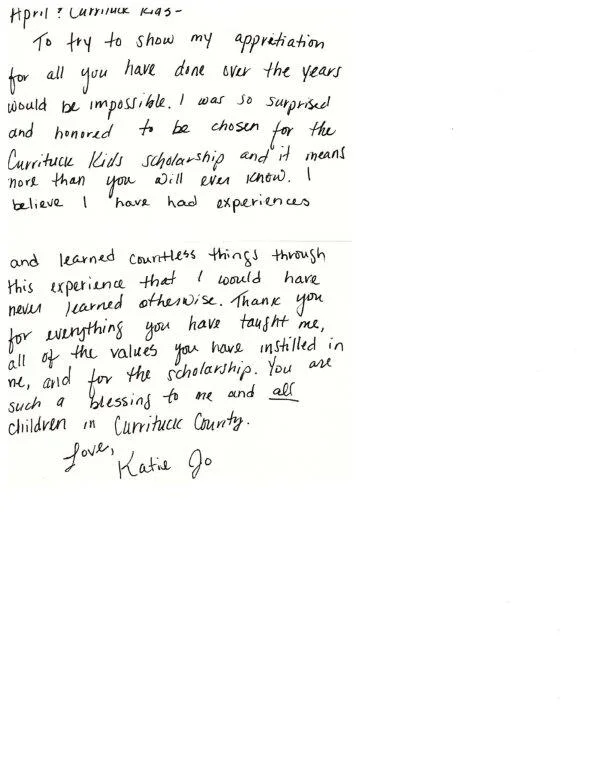 April & Currituck Kids-
To try to show my appretiation
for all you have done over the years
would be impossible. I was so surprised
and honored to be chosen for the
Currituck Kids scholarship and it means
more than you will ever know. I
believe I have had experiences
and learned countless things through
this experience that I would have
never learned otherwise. Thank you
for everything you have taught me,
all of the values you have instilled in
me, and for the scholarship. You are
such a blessing to me and all
children in Currituck County.
Love,
Katie Jo